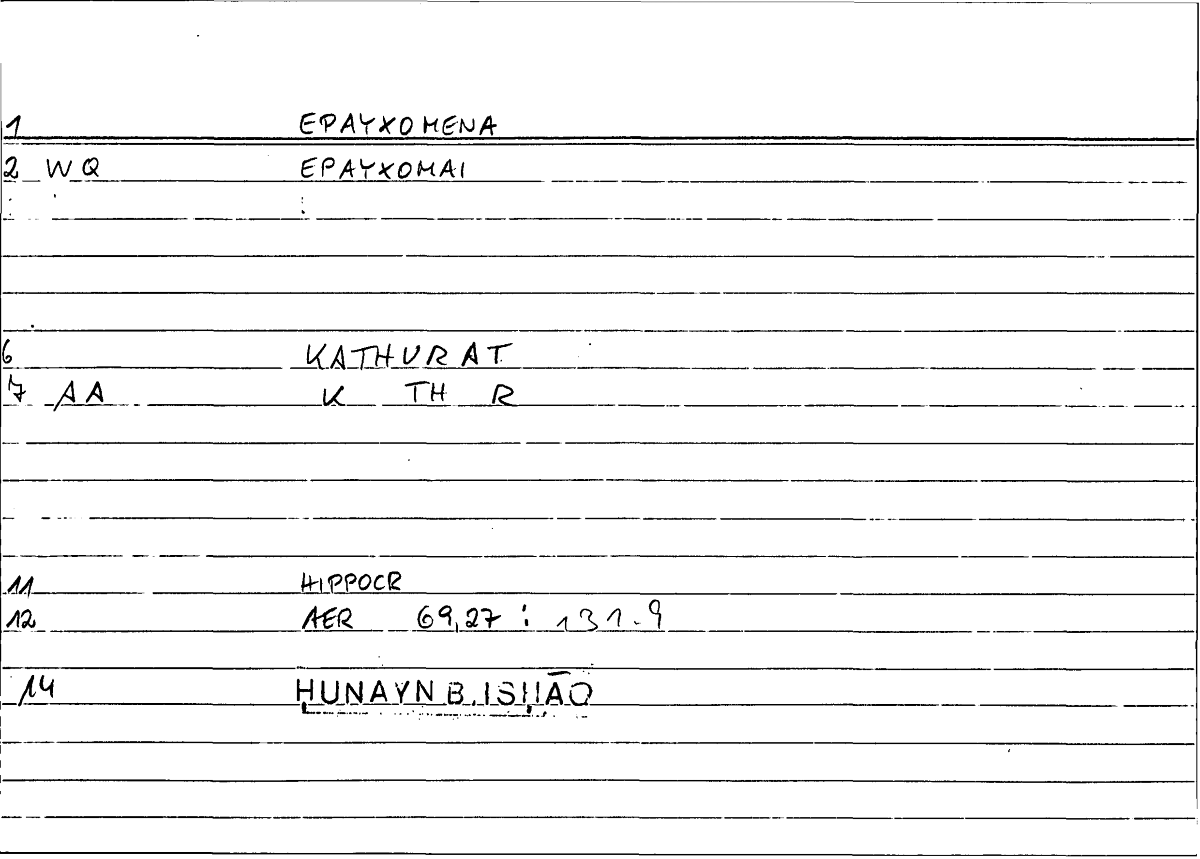 1 EPAYXOMENA
2 WQ EPAYXOMAI
6 KATHURAT
7 AA K TH R
11 HIPPOCR
12 AER 69,27 : 131.9
14 ḤUNAYN B. ISḤĀQ